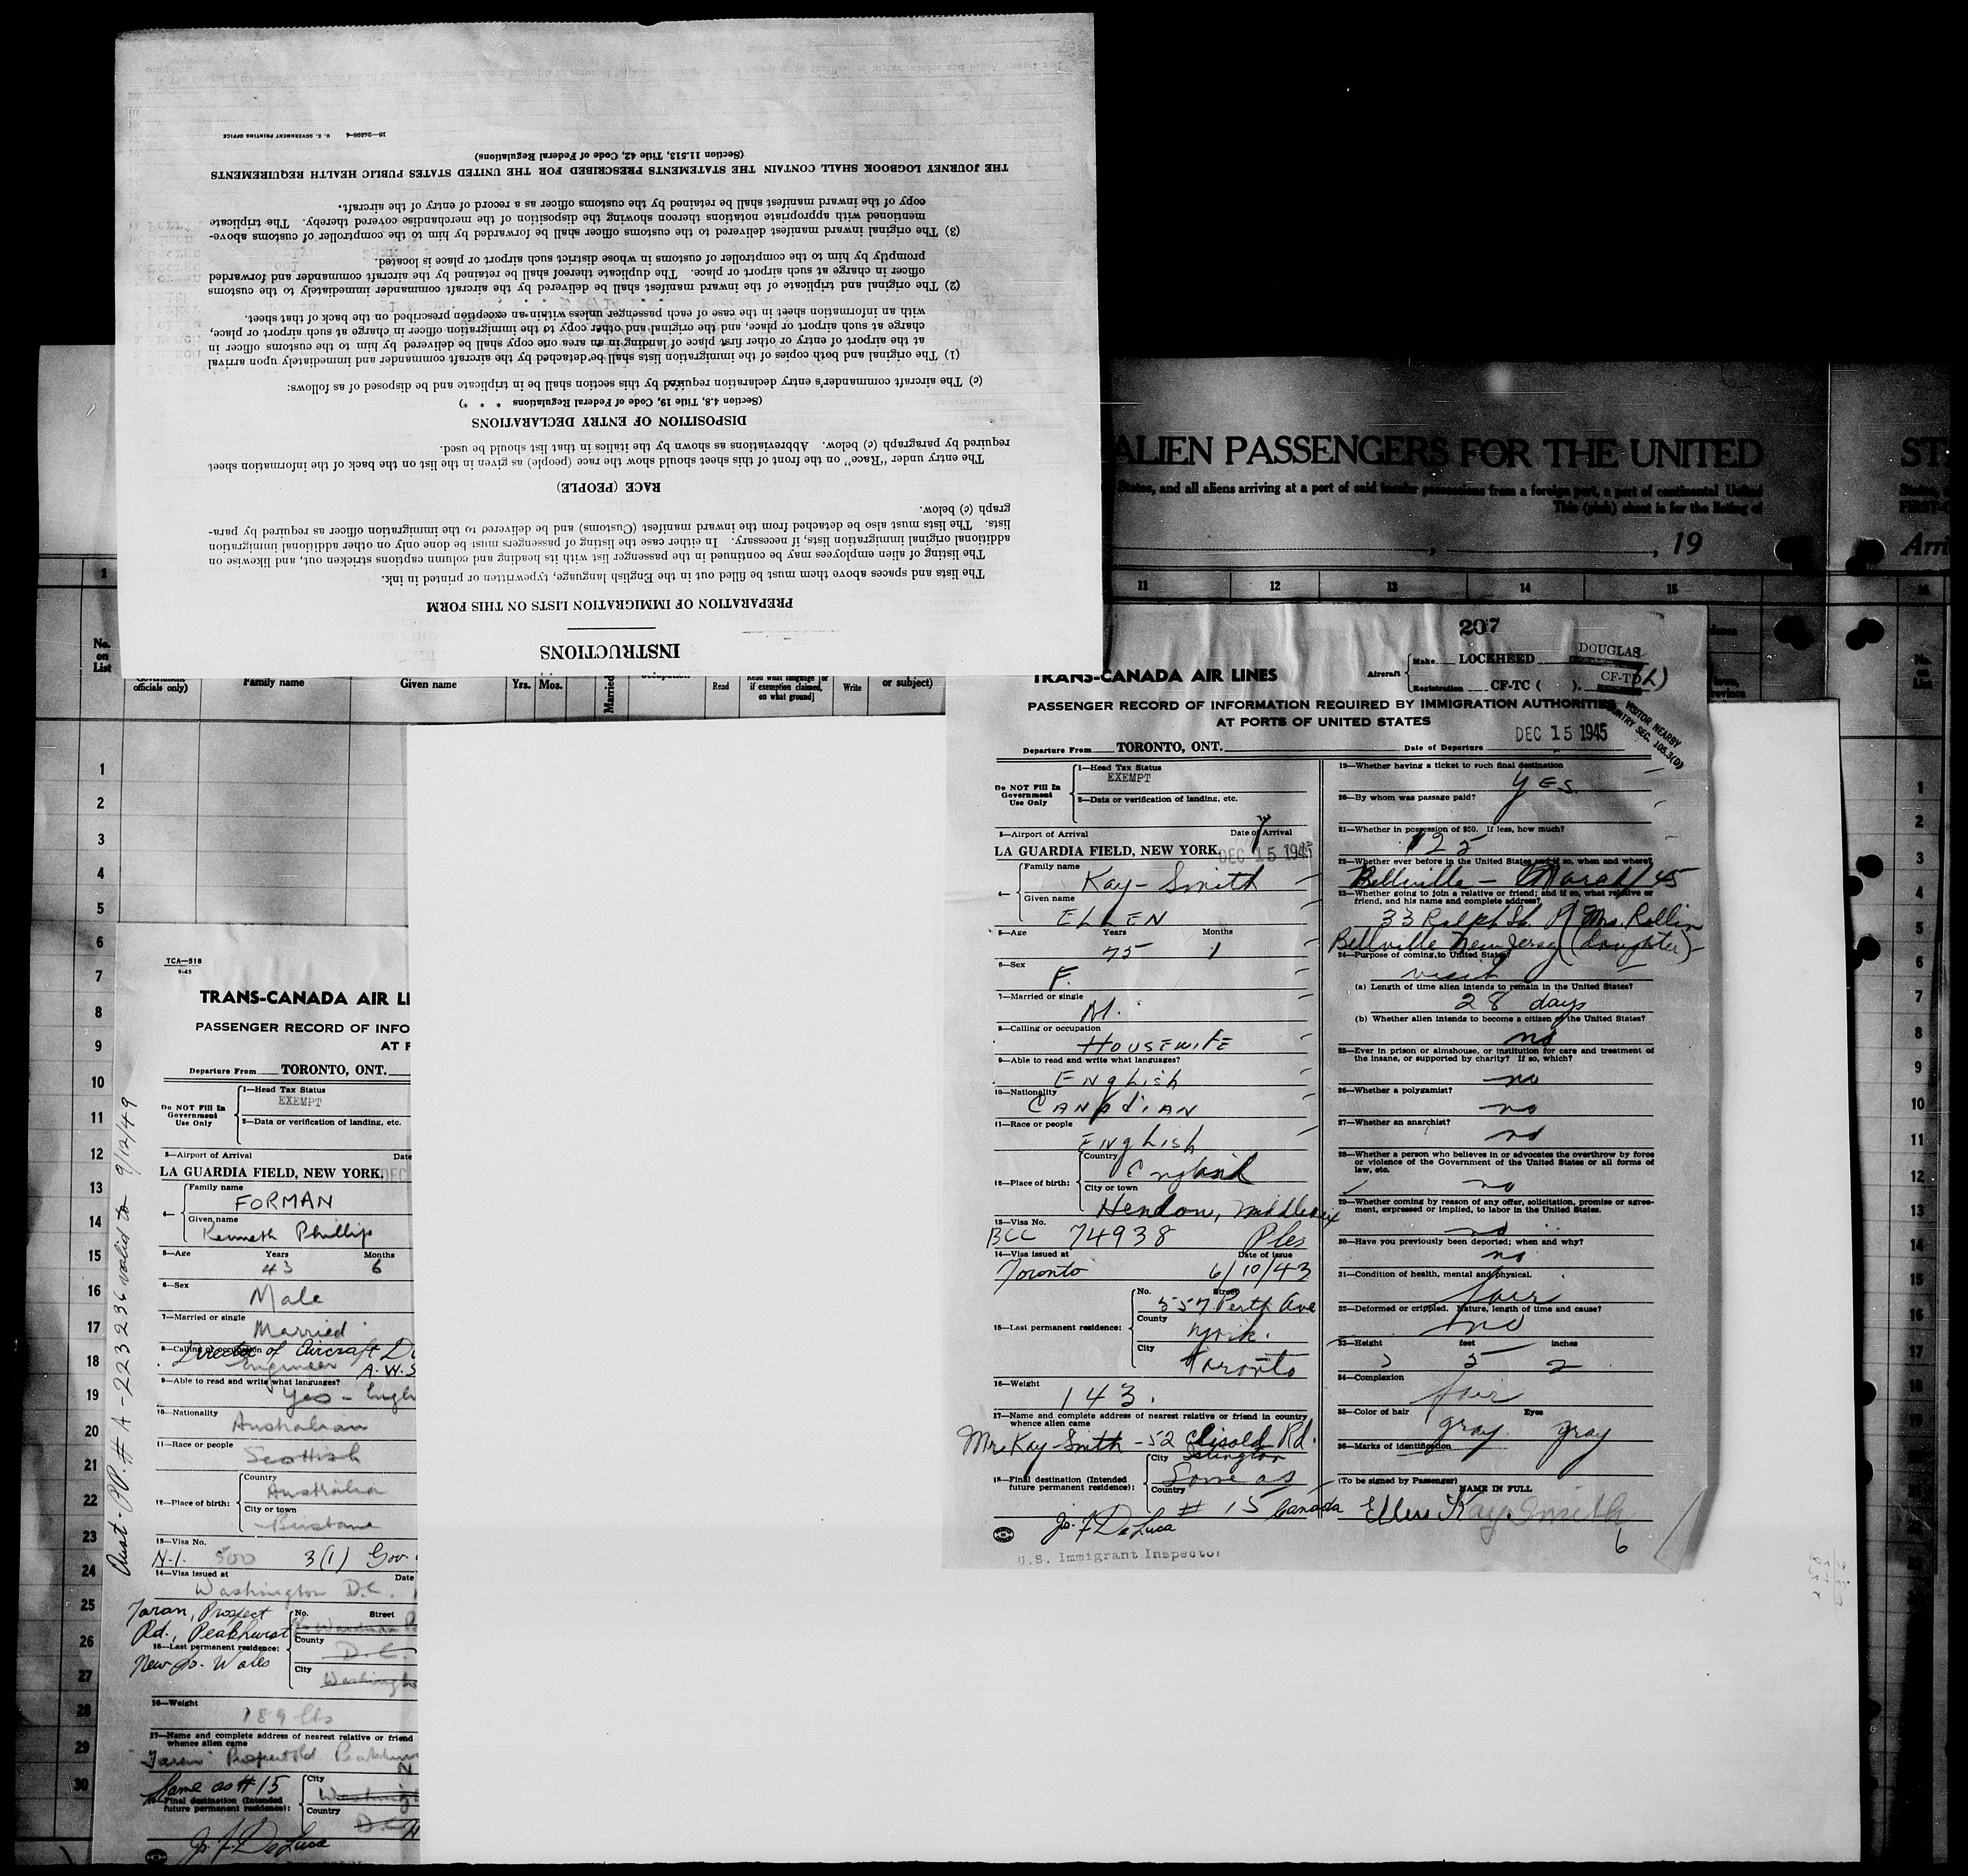 INSTRUCTIONS
PREPARATION OF IMMIGRATION LISTS ON THIS FORM
The lists and spaces above them must be filled out in the English language, typewritten or printed in ink.
The listing of alien employees may be continued in the passenger list with its heading and column captions stricken out, and likewise on
additional original immigration lists, if necessary. In either case the listing of passengers must be done only on other additional immigration
lists. The lists must also be detached from the inward manifest (Customs) and be delivered to the immigration officer as required by para-
graph (c) below.
RACE (PEOPLE)
The entry under "Race" on the front of this sheet should show the race (people) as given in the list on the back of the information sheet
required by paragraph (c) below. Abbreviations as shown by the italics in that list should be used.
DISPOSITION OF ENTRY DECLARATIONS
(Section 4.8, Title 19, Code of Federal Regulations * * *)
(c) The aircraft commander's entry declaration required by this section shall be in triplicate and be disposed of as follows:
(1) The original and both copies of the immigration lists shall be detached by the aircraft commander and immediately upon arrival
at the airport of entry or other first place of landing in an area one copy shall be delivered by him to the customs officer in
charge at such airport or place, and the original and other copy to the immigration officer in charge at such airport or place,
with an information sheet in the case of each passenger unless within an exception prescribed on the back of that sheet.
(2) The original and triplicate of the inward manifest shall be delivered by the aircraft commander immediately to the customs
officer in charge at such airport or place. The duplicate thereof shall be retained by the aircraft commander and forwarded
promptly by him to the comptroller of customs in whose district such airport or place is located.
(3) The original inward manifest delivered to the customs officer shall be forwarded by him to the comptroller of customs above-
mentioned with appropriate notations thereon showing the disposition of the merchandise covered thereby. The triplicate
copy of the inward manifest shall be retained by the customs officer as a record of entry of the aircraft.
THE JOURNEY LOGBOOK SHALL CONTAIN THE STATEMENTS PRESCRIBED FOR THE UNITED STATES PUBLIC HEALTH REQUIREMENTS
(Section 11.513, Title 42, Code of Federal Regulations)
16—24806-4 U. S. GOVERNMENT PRINTING OFFICE
ALIEN PASSENGERS FOR THE UNITED
States, and all aliens arriving at a port of said insular possessions from a foreign port, a port of continental United
This (pink) sheet is for the listing of
, 19
Arri
11 12 13 14 15
No. on List
officials only) Family name Given name Yrs. Mos. Married Read Read what language [or if exemption claimed, on what ground] Write or subject)
1
2
3
4
5
6
7
8
9
10
11
12
13
14
15
16
17
18
19
20
21
22
23
24
25
26
27
28
29
30
TCA—518
9-45
TRANS-CANADA AIR LI
PASSENGER RECORD OF INFO
AT P
Departure From TORONTO, ONT.
Do NOT Fill In Government Use Only
1—Head Tax Status
EXEMPT
2—Data or verification of landing, etc.
3—Airport of Arrival Date
LA GUARDIA FIELD, NEW YORK. DEC
4— Family name
FORMAN
Given name
Kenneth Phillip
5—Age Years Months
43 6
6—Sex
Male
7—Married or single
Married
8—Calling or occupation
Director of Aircraft
Engineer A.W.S
9—Able to read and write what languages?
Yes - Engl
10—Nationality
Australian
11—Race or people
Scottish
12—Place of birth: Country
Australia
City or town
Brisbane
13—Visa No.
N-1. 500 3(1) Gov
14—Visa issued at Date
Washington D.C.
Taran, Prospect
Rd., Peakhurst
New So. Wales
15—Last permanent residence:
No. Street
County
D.C.
City
Washingto
16—Weight
189 lbs
17—Name and complete address of nearest relative or friend
whence alien came
"Taran" Prospect Rd Peakhur
Same as #15
18—Final destination (Intended future permanent residence):
City
Washingt
Country
D.C.
Jo. F. DeLuca
Aust. PP. # A-223236 valid to 9/12/49
207
TRANS-CANADA AIR LINES
Aircraft Make LOCKHEED DOUGLAS
Registration CF-TC ( ). CF-TD
PASSENGER RECORD OF INFORMATION REQUIRED BY IMMIGRATION AUTHORITIES
AT PORTS OF UNITED STATES
VISITOR NEARBY
COUNTRY SEC. 105.3(D)
Departure From TORONTO, ONT. Date of Departure DEC 15 1945
Do NOT Fill In Government Use Only
1—Head Tax Status
EXEMPT
2—Data or verification of landing, etc.
3—Airport of Arrival Date of Arrival
LA GUARDIA FIELD, NEW YORK. DEC 15 1945
4— Family name
Kay-Smith
Given name
ELLEN
5—Age Years Months
75 1
6—Sex
F.
7—Married or single
M.
8—Calling or occupation
HOUSEWIFE
9—Able to read and write what languages?
English
10—Nationality
CANADIAN
11—Race or people
English
12—Place of birth: Country
England
City or town
Hendon, Middlesex
13—Visa No.
BCC 74938
14—Visa issued at Date of issue
Toronto 6/10/43
15—Last permanent residence:
No. Street
557 Perth Ave
County
York.
City
Toronto
16—Weight
143.
17—Name and complete address of nearest relative or friend in country
whence alien came
Mr Kay-Smith - 52 Clisold Rd.
Islington
18—Final destination (Intended future permanent residence):
City
Same as
Country
# 15 Canada
Jo. F. DeLuca
U.S. Immigrant Inspector
19—Whether having a ticket to such final destination
YES.
20—By whom was passage paid?
21—Whether in possession of $50. If less, how much?
125
22—Whether ever before in the United States and if so, when and where?
Bellville - March/45
23—Whether going to join a relative or friend; and if so, what relative or
friend, and his name and complete address?
33 Ralph St. Mrs. Rollin
Bellville New Jersey (daughter)
24—Purpose of coming to United States?
visit
(a) Length of time alien intends to remain in the United States?
28 days
(b) Whether alien intends to become a citizen of the United States?
no
25—Ever in prison or almshouse, or institution for care and treatment of
the insane, or supported by charity? If so, which?
no
26—Whether a polygamist?
no
27—Whether an anarchist?
no
28—Whether a person who believes in or advocates the overthrow by force
or violence of the Government of the United States or all forms of
law, etc.
no
29—Whether coming by reason of any offer, solicitation, promise or agree-
ment, expressed or implied, to labor in the United States.
no
30—Have you previously been deported; when and why?
no
31—Condition of health, mental and physical.
fair
32—Deformed or crippled. Nature, length of time and cause?
no
33—Height feet inches
5 2
34—Complexion
fair
35—Color of hair Eyes
gray gray
36—Marks of identification
(To be signed by Passenger)
NAME IN FULL
Ellen Kay Smith
6